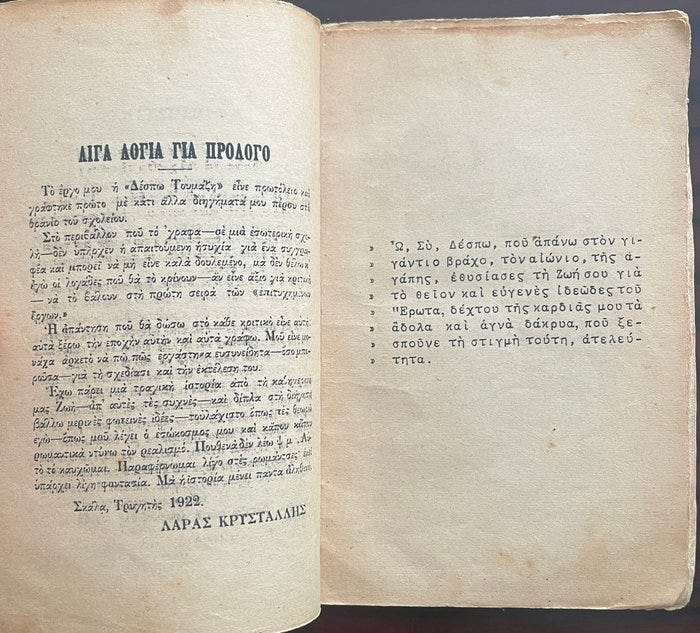 ΛΙΓΑ ΛΟΓΙΑ ΓΙΑ ΠΡΟΛΟΓΟ
Τὸ ἔργο μου ἡ «Δέσπω Τουμαζῆ» εἶνε πρωτόλειο καὶ
γράφτηκε πρῶτο μὲ κάτι ἄλλα διηγήματά μου πέρσυ στὸ
θρανίο τοῦ σχολείου.
Στὸ περιβάλλον ποῦ τὸ ’γραφα—σὲ μιὰ ἐσωτερικὴ σχο-
λή—δὲν ὑπῆρχεν ἡ ἀπαιτούμενη ἡσυχία γιὰ ἕνα συγγρα-
φέα καὶ μπορεῖ νὰ μὴ εἶνε καλὰ δουλεμένο, μὰ δὲν θέλω κι’
ἐγὼ οἱ λογάδες ποῦ θὰ τὸ κρίνουν—ἂν εἶνε ἄξιο γιὰ κριτικὴ
— νὰ τὸ βάλουν στὴ πρώτη σειρὰ τῶν «ἐπιτυχημένων
ἔργων.»
Ἡ ἀπάντηση ποῦ θὰ δώσω στὸ κάθε κριτικὸ εἶνε αὐτή·
αὐτὰ ξέρω τὴν ἐποχὴν αὐτὴν καὶ αὐτὰ γράφω. Μοῦ εἶνε μο-
νάχα ἀρκετὸ νὰ πῶ πῶς ἐργάστηκα εὐσυνείδητα—ὅσο μπο-
ροῦσα—γιὰ τὴ σχεδίασι καὶ τὴν ἐκτέλεση του.
Ἔχω πάρει μιὰ τραγικὴ ἱστορία ἀπὸ τὴ καθημερινή
μας Ζωή—ἀπ’ αὐτὲς τὲς συχνές—καὶ δίπλα στὴ διήγηση
βάλλω μερικὲς φωτεινὲς ἰδέες—τοὐλάχιστο ὅπως τὲς θεωρῶ
ἐγώ—ὅπως μοῦ λέγει ὁ ἐσώκοσμος μου καὶ κάπου κάπου
ρωμαντικὰ ντύνω τὸν ρεαλισμό. Πουθενὰ δὲν λέω
τὸ τὸ καυχῶμαι. Παραφέρνωμαι λίγο στὲς ρωμάντσες
ὑπάρχει λίγη φαντασία. Μὰ ἡ ἱστορία μένει πάντα ἀληθινή.
Σκάλα, Τρυγητὴς 1922.
ΛΑΡΑΣ ΚΡΥΣΤΑΛΛΗΣ
» Ὦ, Σὺ, Δέσπω, ποῦ ἀπάνω στὸν γι-
» γάντιο βράχο, τὸν αἰώνιο, τῆς ἀ-
» γάπης, ἐθυσίασες τὴ Ζωή σου γιὰ
» τὸ θεῖον καὶ εὐγενὲς ἰδεῶδες τοῦ
» Ἔρωτα, δέχτου τῆς καρδιᾶς μου τὰ
» ἄδολα καὶ ἁγνὰ δάκρυα, ποῦ ξε-
» σποῦνε τὴ στιγμὴ τούτη, ἀτελεύ-
» τητα.